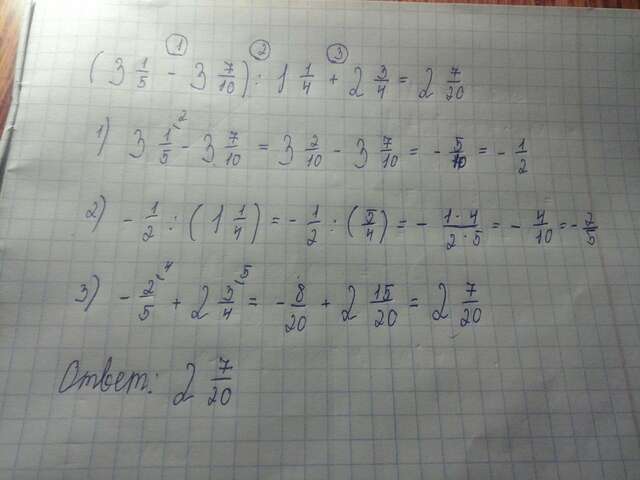 ① ② ③
(3 1/5 - 3 7/10) : 1 1/4 + 2 3/4 = 2 7/20
1) 3 1/5 ^2 - 3 7/10 = 3 2/10 - 3 7/10 = - 5/10 = - 1/2
2) - 1/2 : (1 1/4) = - 1/2 : (5/4) = - 1·4/2·5 = - 4/10 = - 2/5
3) - 2/5 ^4 + 2 3/4 ^5 = - 8/20 + 2 15/20 = 2 7/20
Ответ: 2 7/20